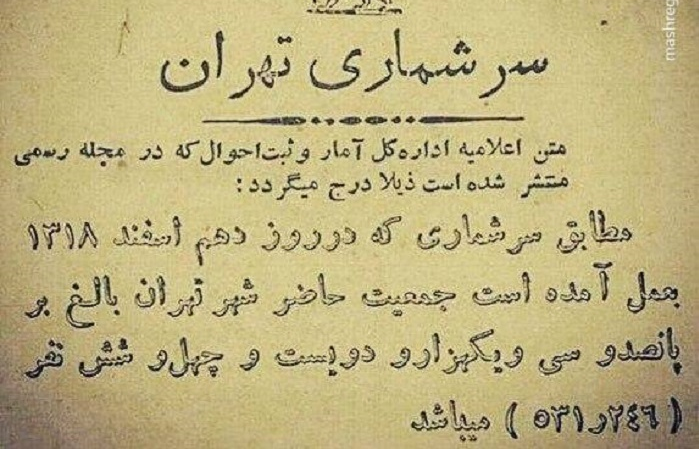 سرشماری تهران
متن اعلامیه اداره کل آمار و ثبت احوال که در مجله رسمی
منتشر شده است ذیلا درج میگردد:
مطابق سرشماری که در روز دهم اسفند ۱۳۱۸
بعمل آمده است جمعیت حاضر شهر تهران بالغ بر
پانصدو سی ویکهزارو دویست و چهل و شش نفر
(۵۳۱ر۲۴۶) میباشد
mashreg